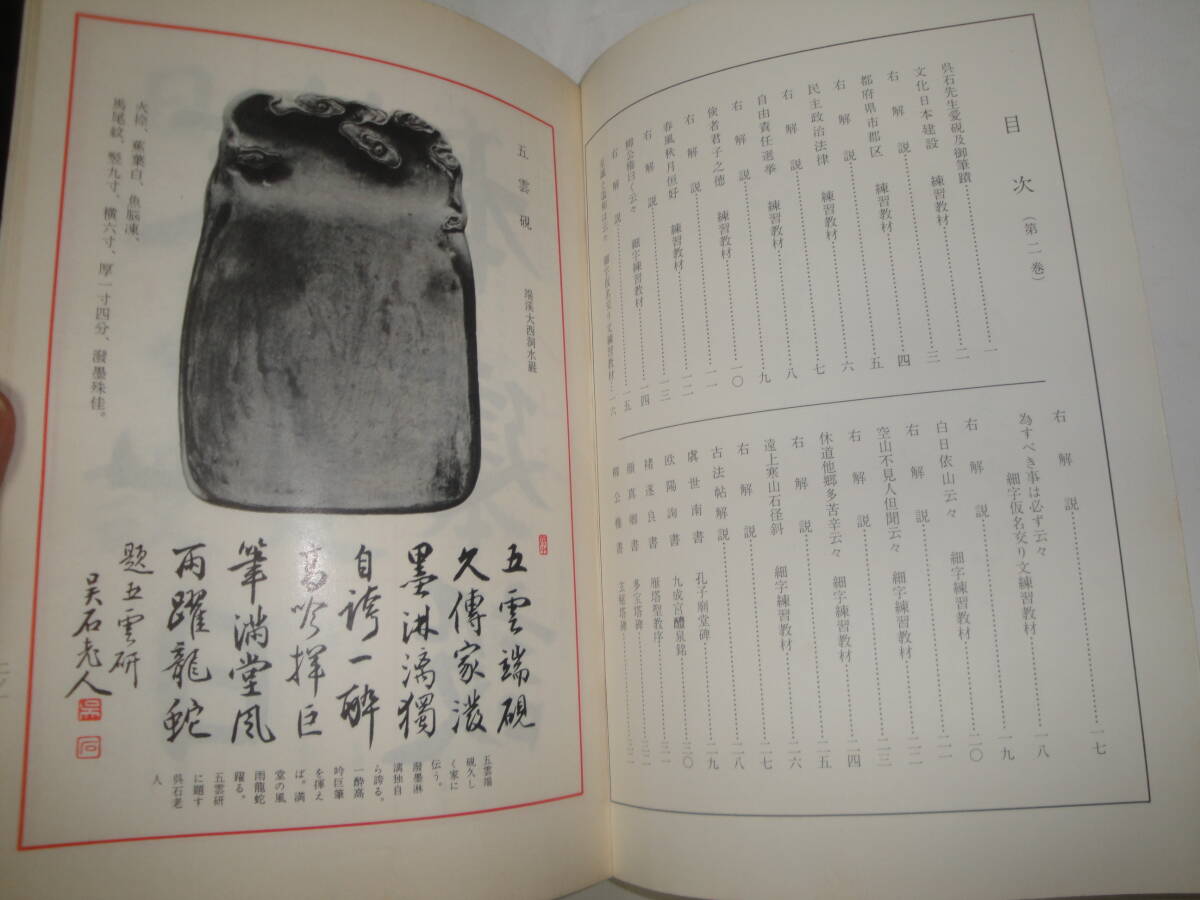 目次（第二巻）
呉石先生愛硯及御筆蹟 一
文化日本建設 練習教材 二
右解説 三
都府県市郡区 練習教材 四
右解説 五
民主政治法律 練習教材 六
右解説 七
自由責任選挙 練習教材 八
右解説 九
侯者君子之徳 練習教材 一〇
右解説 一一
春風秋月恒好 練習教材 一二
右解説 一三
柳公権曰く云々 細字練習教材 一四
右解説 一五
細字仮名交り文練習教材 一六
右解説 一七
為すべき事は必ず云々
細字仮名交り文練習教材 一八
右解説 一九
白日依山云々 細字練習教材 二〇
右解説 二一
空山不見人但聞云々 細字練習教材 二二
右解説 二三
休道他郷多苦辛云々 細字練習教材 二四
右解説 二五
遠上寒山石径斜 細字練習教材 二六
右解説 二七
古法帖解説 二八
虞世南書 孔子廟堂碑 二九
欧陽詢書 九成宮醴泉銘 三〇
褚遂良書 雁塔聖教序 三一
顔真卿書 多宝塔碑 三二
柳公権書 玄秘塔碑
五雲硯 端渓大西洞水巌
火捺、蕉葉白、魚脳凍、
馬尾紋、竪九寸、横六寸、厚一寸四分、潑墨殊佳。
五雲端硯
久傳家潑
墨淋漓獨
自誇一酔
高吟揮巨
筆満堂風
雨躍龍蛇
題五雲研
呉石老人
呉
石
五雲端
硯久し
く家に
伝う。
潑墨淋
漓独自
ら誇る。
一酔高
吟巨筆
を揮え
ば。満
堂の風
雨龍蛇
躍る。
五雲研
に題す
呉石老
人